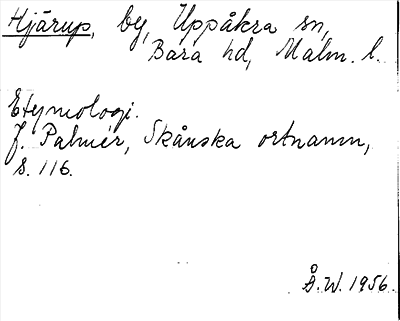 Hjärup, by, Uppåkra sn,
Bara hd, Malm. l.
Etymologi.
J. Palmér, Skånska ortnamn,
s. 116.
Å.W. 1956.